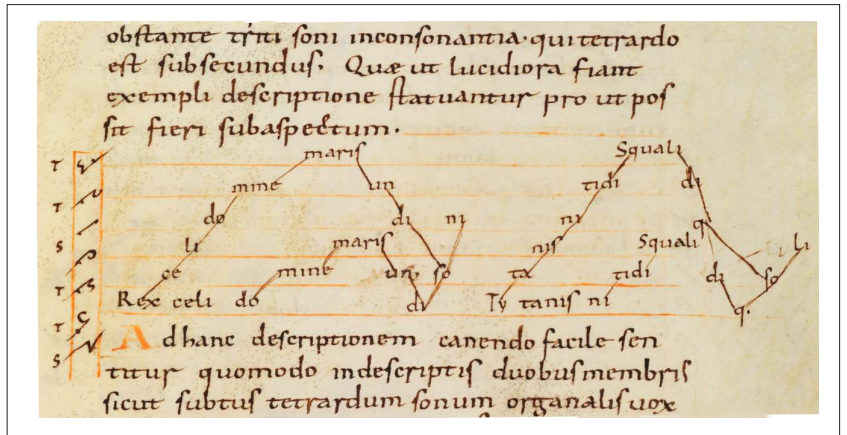 obstante triti soni inconsonantia. qui tetrardo
est subsecundus. Quæ ut lucidiora fiant
exempli descriptione statuantur pro ut pos
sit fieri subaspectum.
maris Squali
T mine un tidi di
T do di ni ni q.
S li maris so nis Squali li
T ce mine un ta tidi di so
T Rex celi do di Ty tanis ni q.
S Ad hanc descriptionem canendo facile sen
titur quomodo indescriptis duobus membris
sicut subtus tetrardum sonum organalis uox